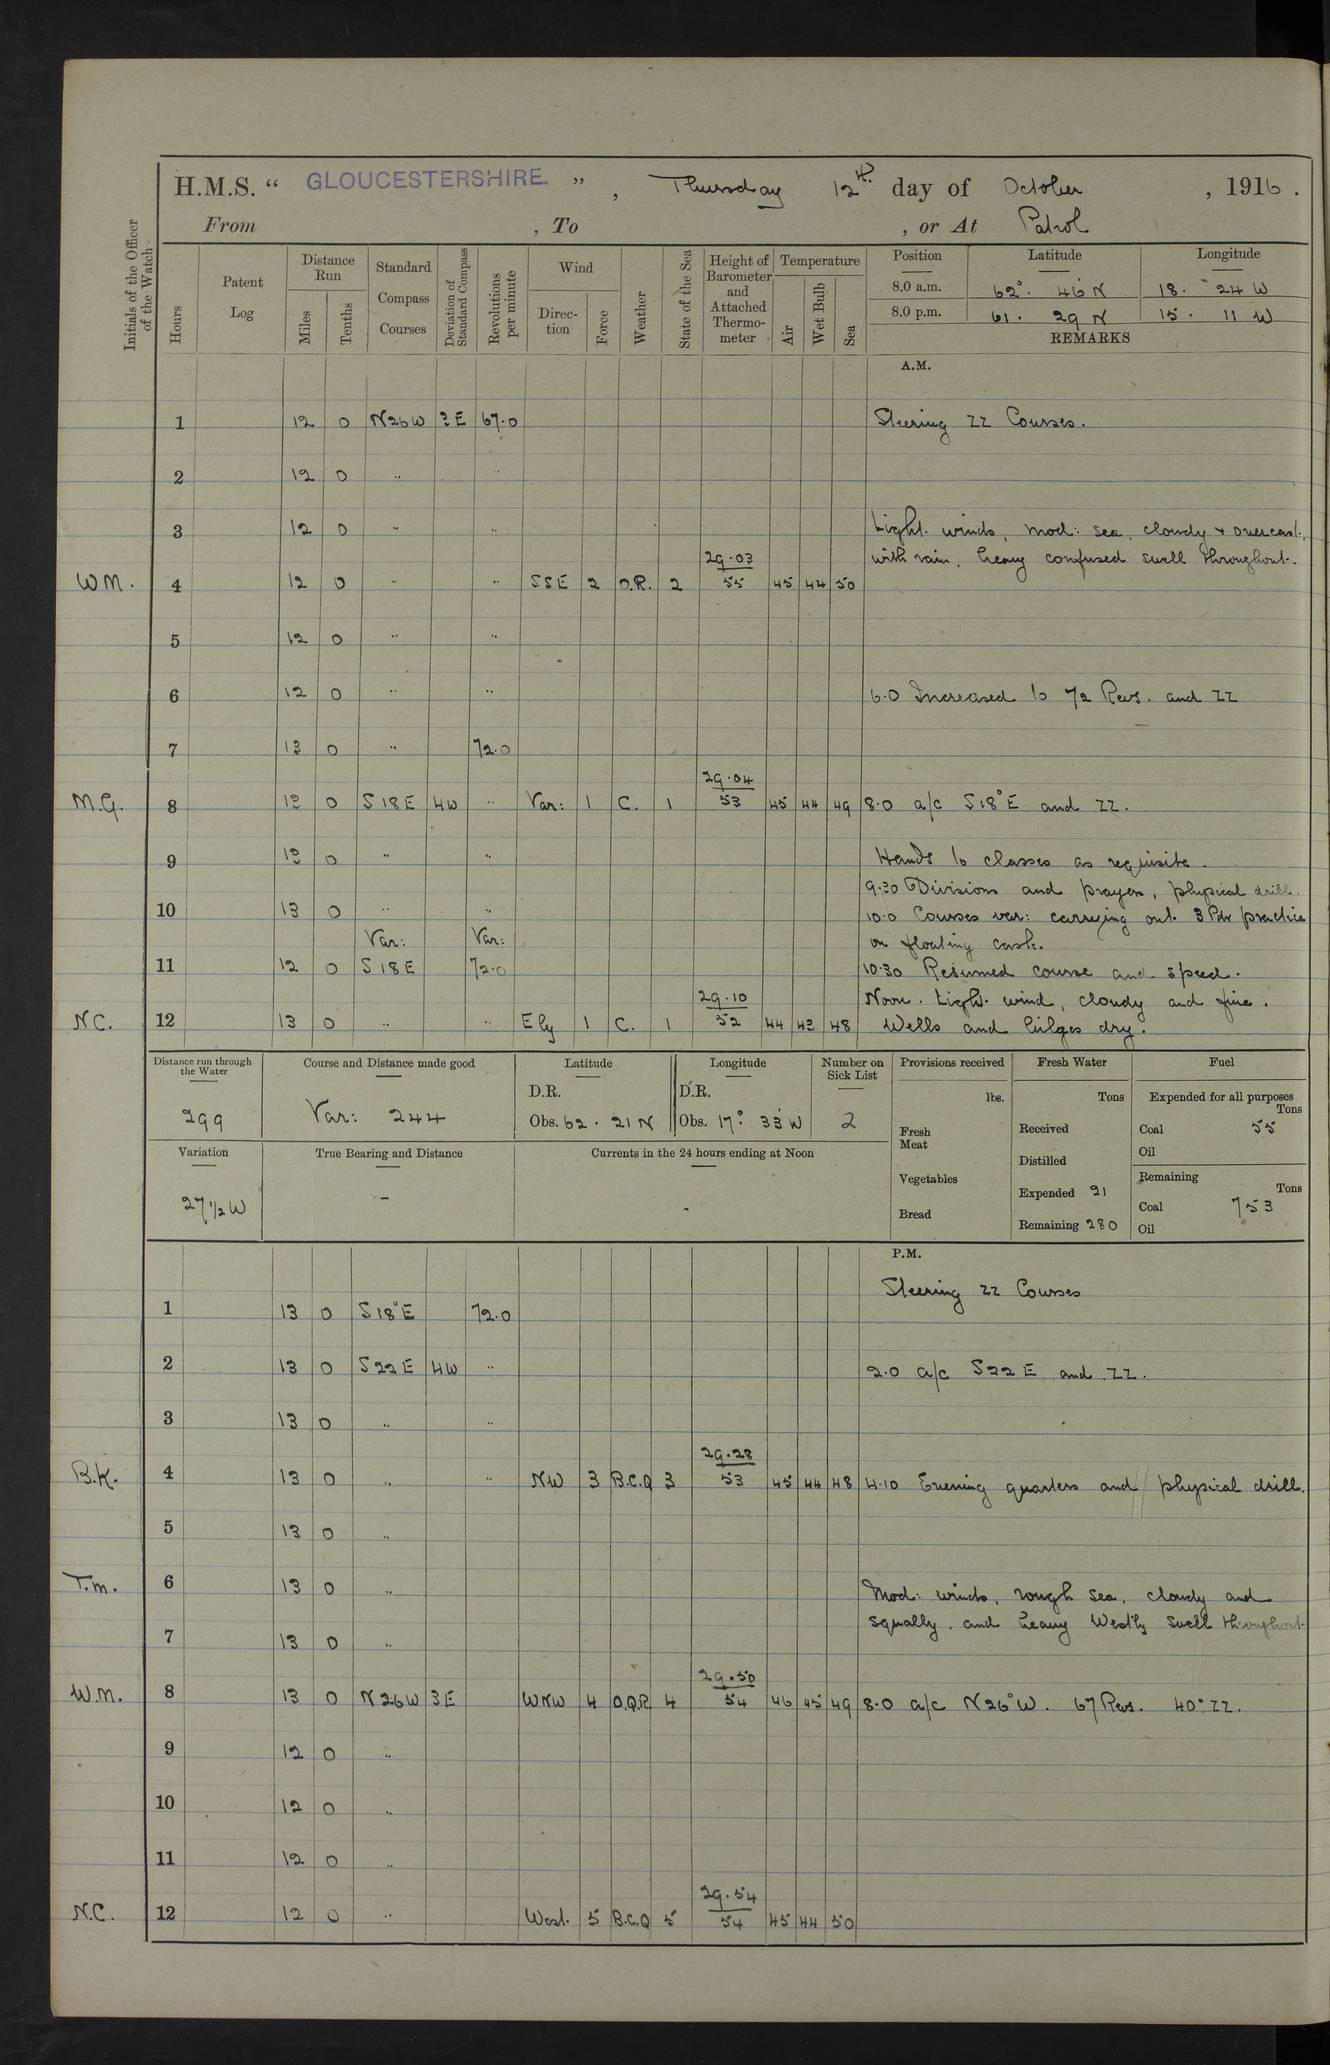 H.M.S. “ GLOUCESTERSHIRE. ” , Thursday 12th day of October , 1916 .
From , To , or At Patrol
Initials of the Officer of the Watch
Hours
Patent Log
Distance Run
Miles
Tenths
Standard Compass Courses
Deviation of Standard Compass
Revolutions per minute
Wind
Direction
Force
Weather
State of the Sea
Height of Barometer and Attached Thermometer
Temperature
Air
Wet Bulb
Sea
Position Latitude Longitude
8.0 a.m. 62°. 46' N 18. 24 W
8.0 p.m. 61. 29 N 15. 11 W
REMARKS
A.M.
1 12 0 N26W 3E 67.0 Steering ZZ Courses.
2 12 0 " "
3 12 0 " " Light winds, mod: sea, cloudy + overcast,
29.03 with rain, heavy confused swell throughout.
WM. 4 12 0 " " SSE 2 O.R. 2 55 45 44 50
5 12 0 " "
6 12 0 " " 6.0 Increased to 72 Revs. and ZZ
7 13 0 " 72.0
29.04
M.G. 8 13 0 S18E 4W " Var: 1 C. 1 53 45 44 49 8.0 a/c S18°E and ZZ.
9 13 0 " " Hands to classes as requisite.
9.30 Divisions and prayers, physical drill.
10 13 0 " " 10.0 Courses var: carrying out 3 Pdr practice
Var: Var: on floating cask.
11 12 0 S18E 72.0 10.30 Resumed course and speed.
29.10 Noon. Light wind, cloudy and fine.
NC. 12 13 0 " " Ely 1 C. 1 52 44 43 48 Wells and bilges dry.
Distance run through the Water
299
Course and Distance made good
Var: 244
Latitude
D.R.
Obs. 62. 21 N
Longitude
D.R.
Obs. 17° 33' W
Number on Sick List
2
Provisions received
lbs.
Fresh Meat
Vegetables
Bread
Fresh Water
Tons
Received
Distilled
Expended 21
Remaining 280
Fuel
Expended for all purposes
Tons
Coal 55
Oil
Remaining
Tons
Coal 753
Oil
Variation
27 1/2 W
True Bearing and Distance
-
Currents in the 24 hours ending at Noon
-
P.M.
Steering ZZ Courses
1 13 0 S18°E 72.0
2 13 0 S22E 4W " 2.0 a/c S22E and ZZ.
3 13 0 " "
29.28
B.K. 4 13 0 " " NW 3 B.C.Q 3 53 45 44 48 4.10 Evening quarters and physical drill.
5 13 0 "
T.m. 6 13 0 " Mod: winds, rough sea, cloudy and
squally, and heavy Westly swell throughout
7 13 0 "
29.50
W.M. 8 13 0 N26W 3E WNW 4 O.Q.R. 4 54 46 45 49 8.0 a/c N26°W. 67 Revs. 40° ZZ.
9 12 0 "
10 12 0 "
11 12 0 "
29.54
N.C. 12 12 0 " West. 5 B.C.Q 5 54 45 44 50